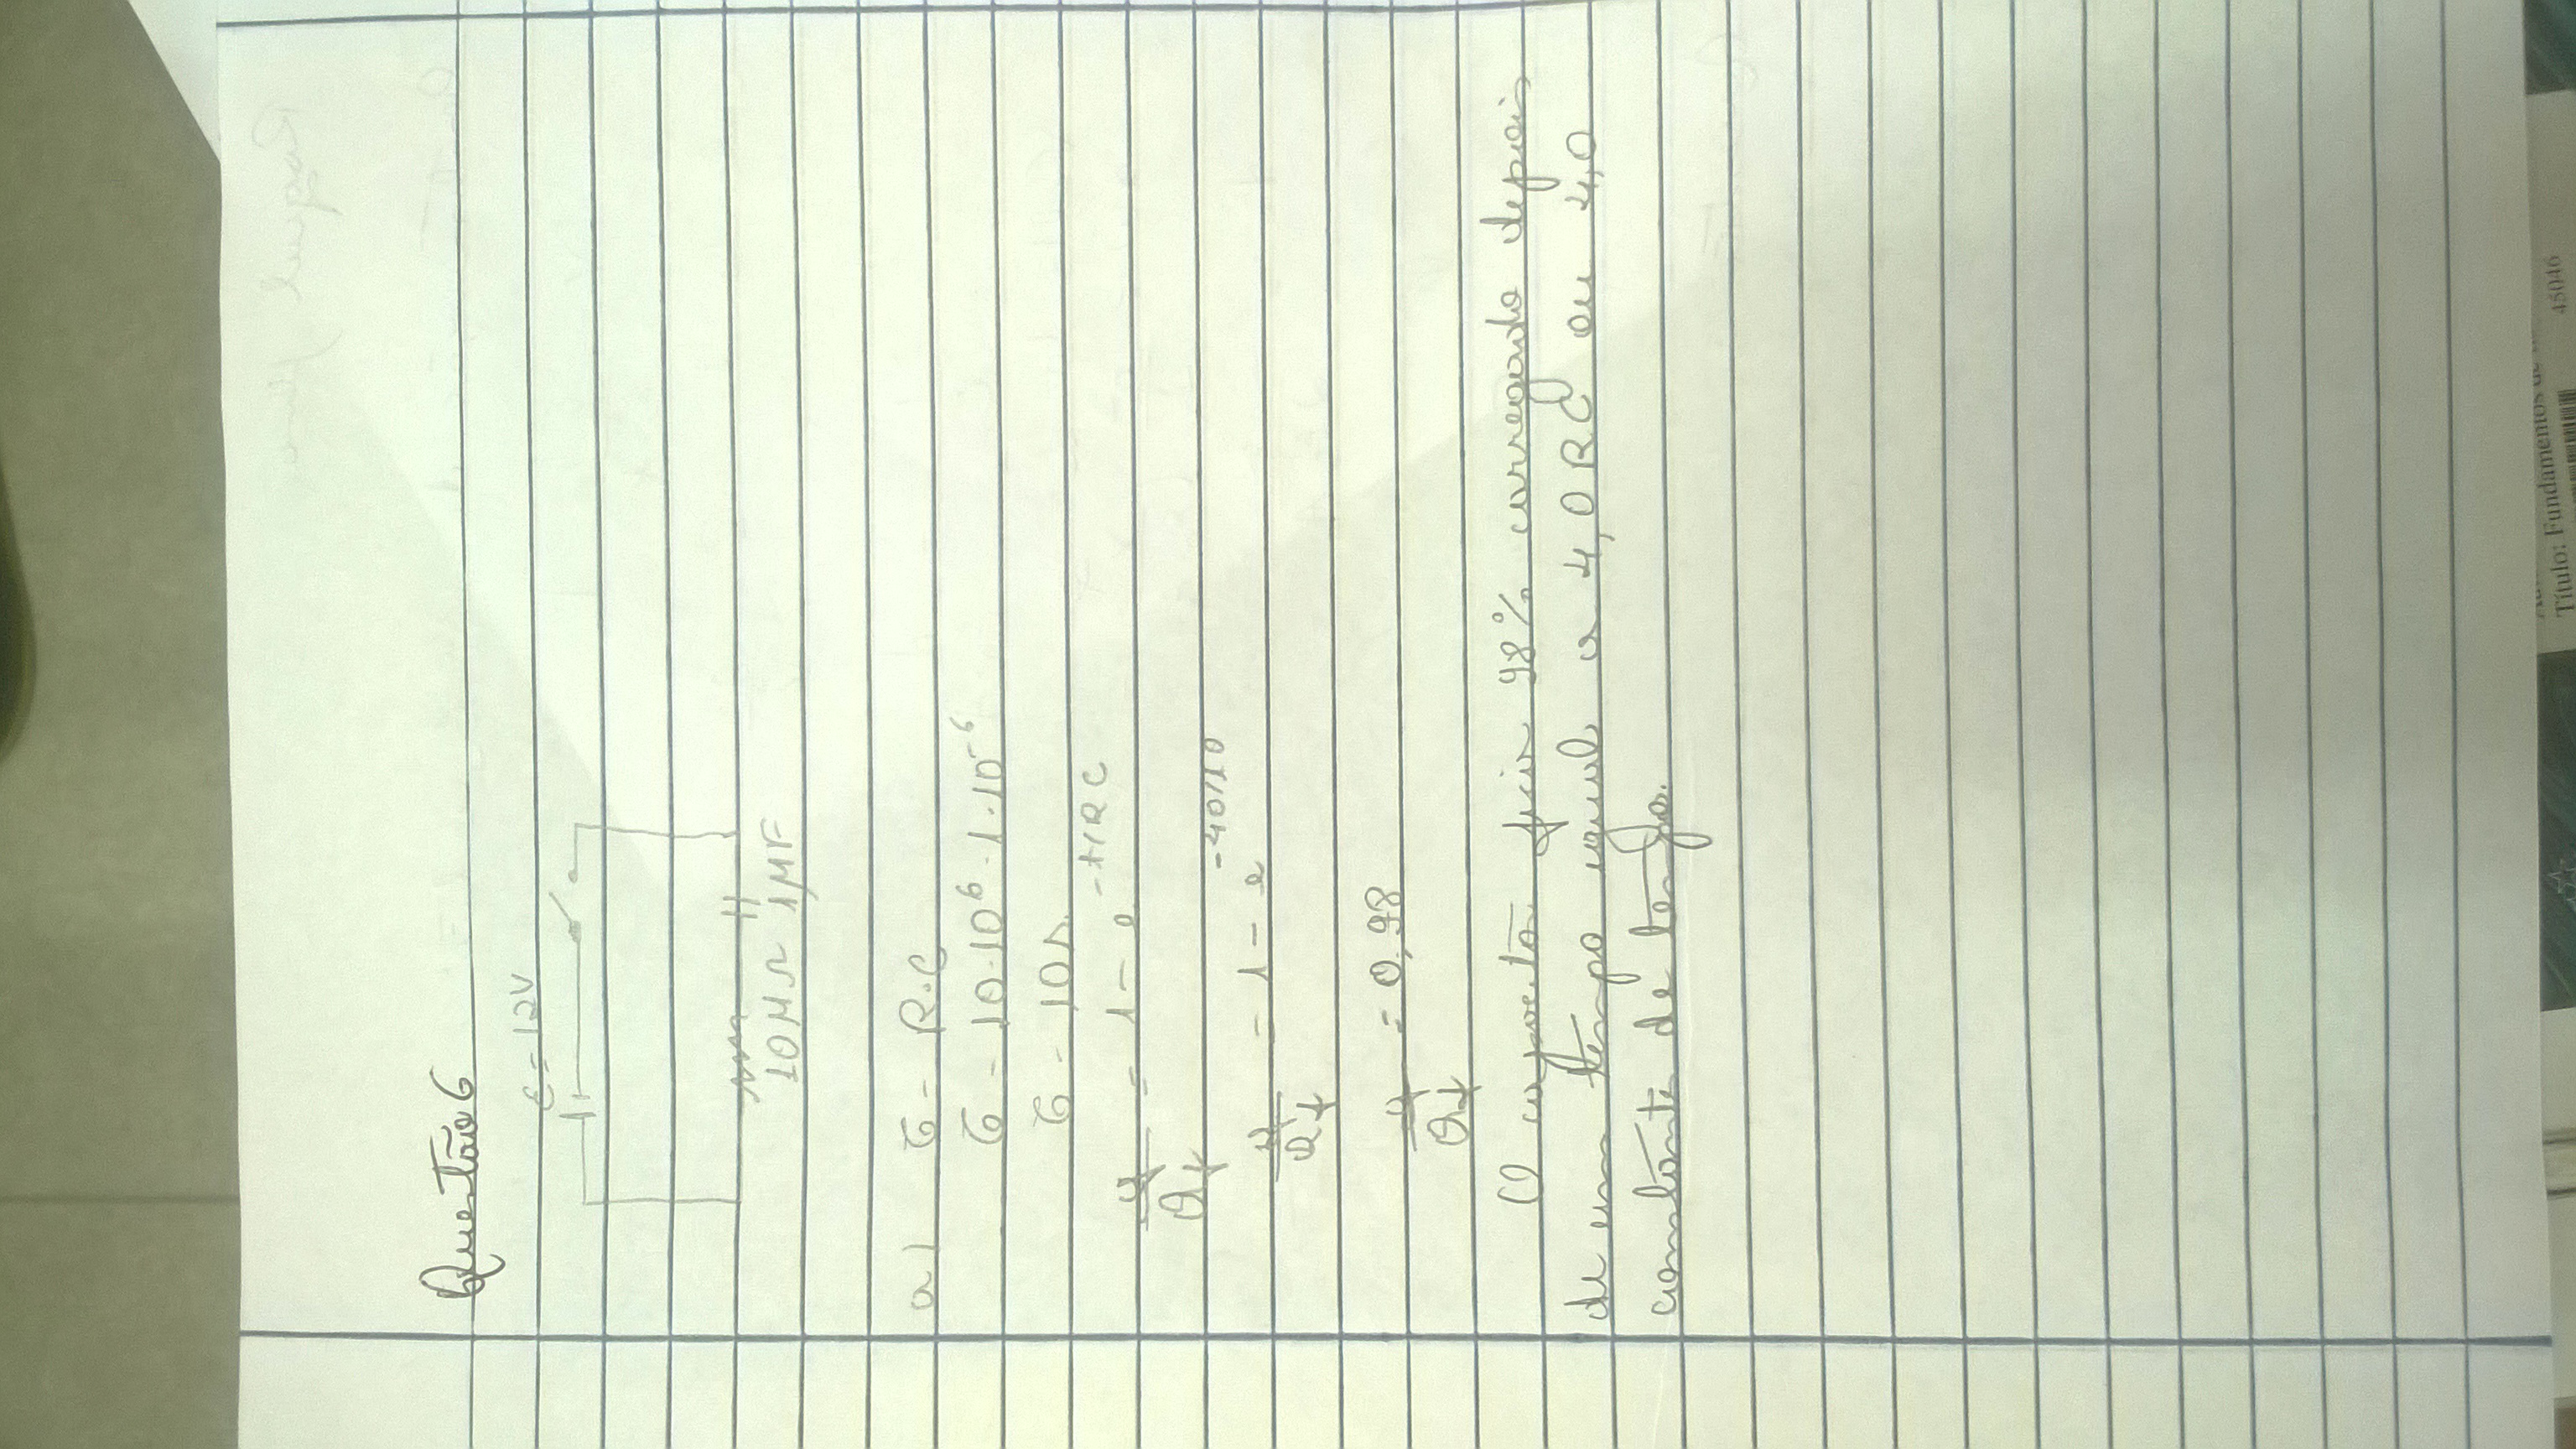 Questão 6
ε = 12V
10MΩ 1μF
a) τ = R.C
τ = 10.10⁶ . 1.10⁻⁶
τ = 10s.
q/Qf = 1 - e^-t/RC
q/Qf = 1 - e^-40/10
q/Qf = 0,98
O capacitor fica 98% carregado depois
de um tempo igual a 4,0 RC ou 4,0
constante de tempo.
Título: Fundamentos de
45046